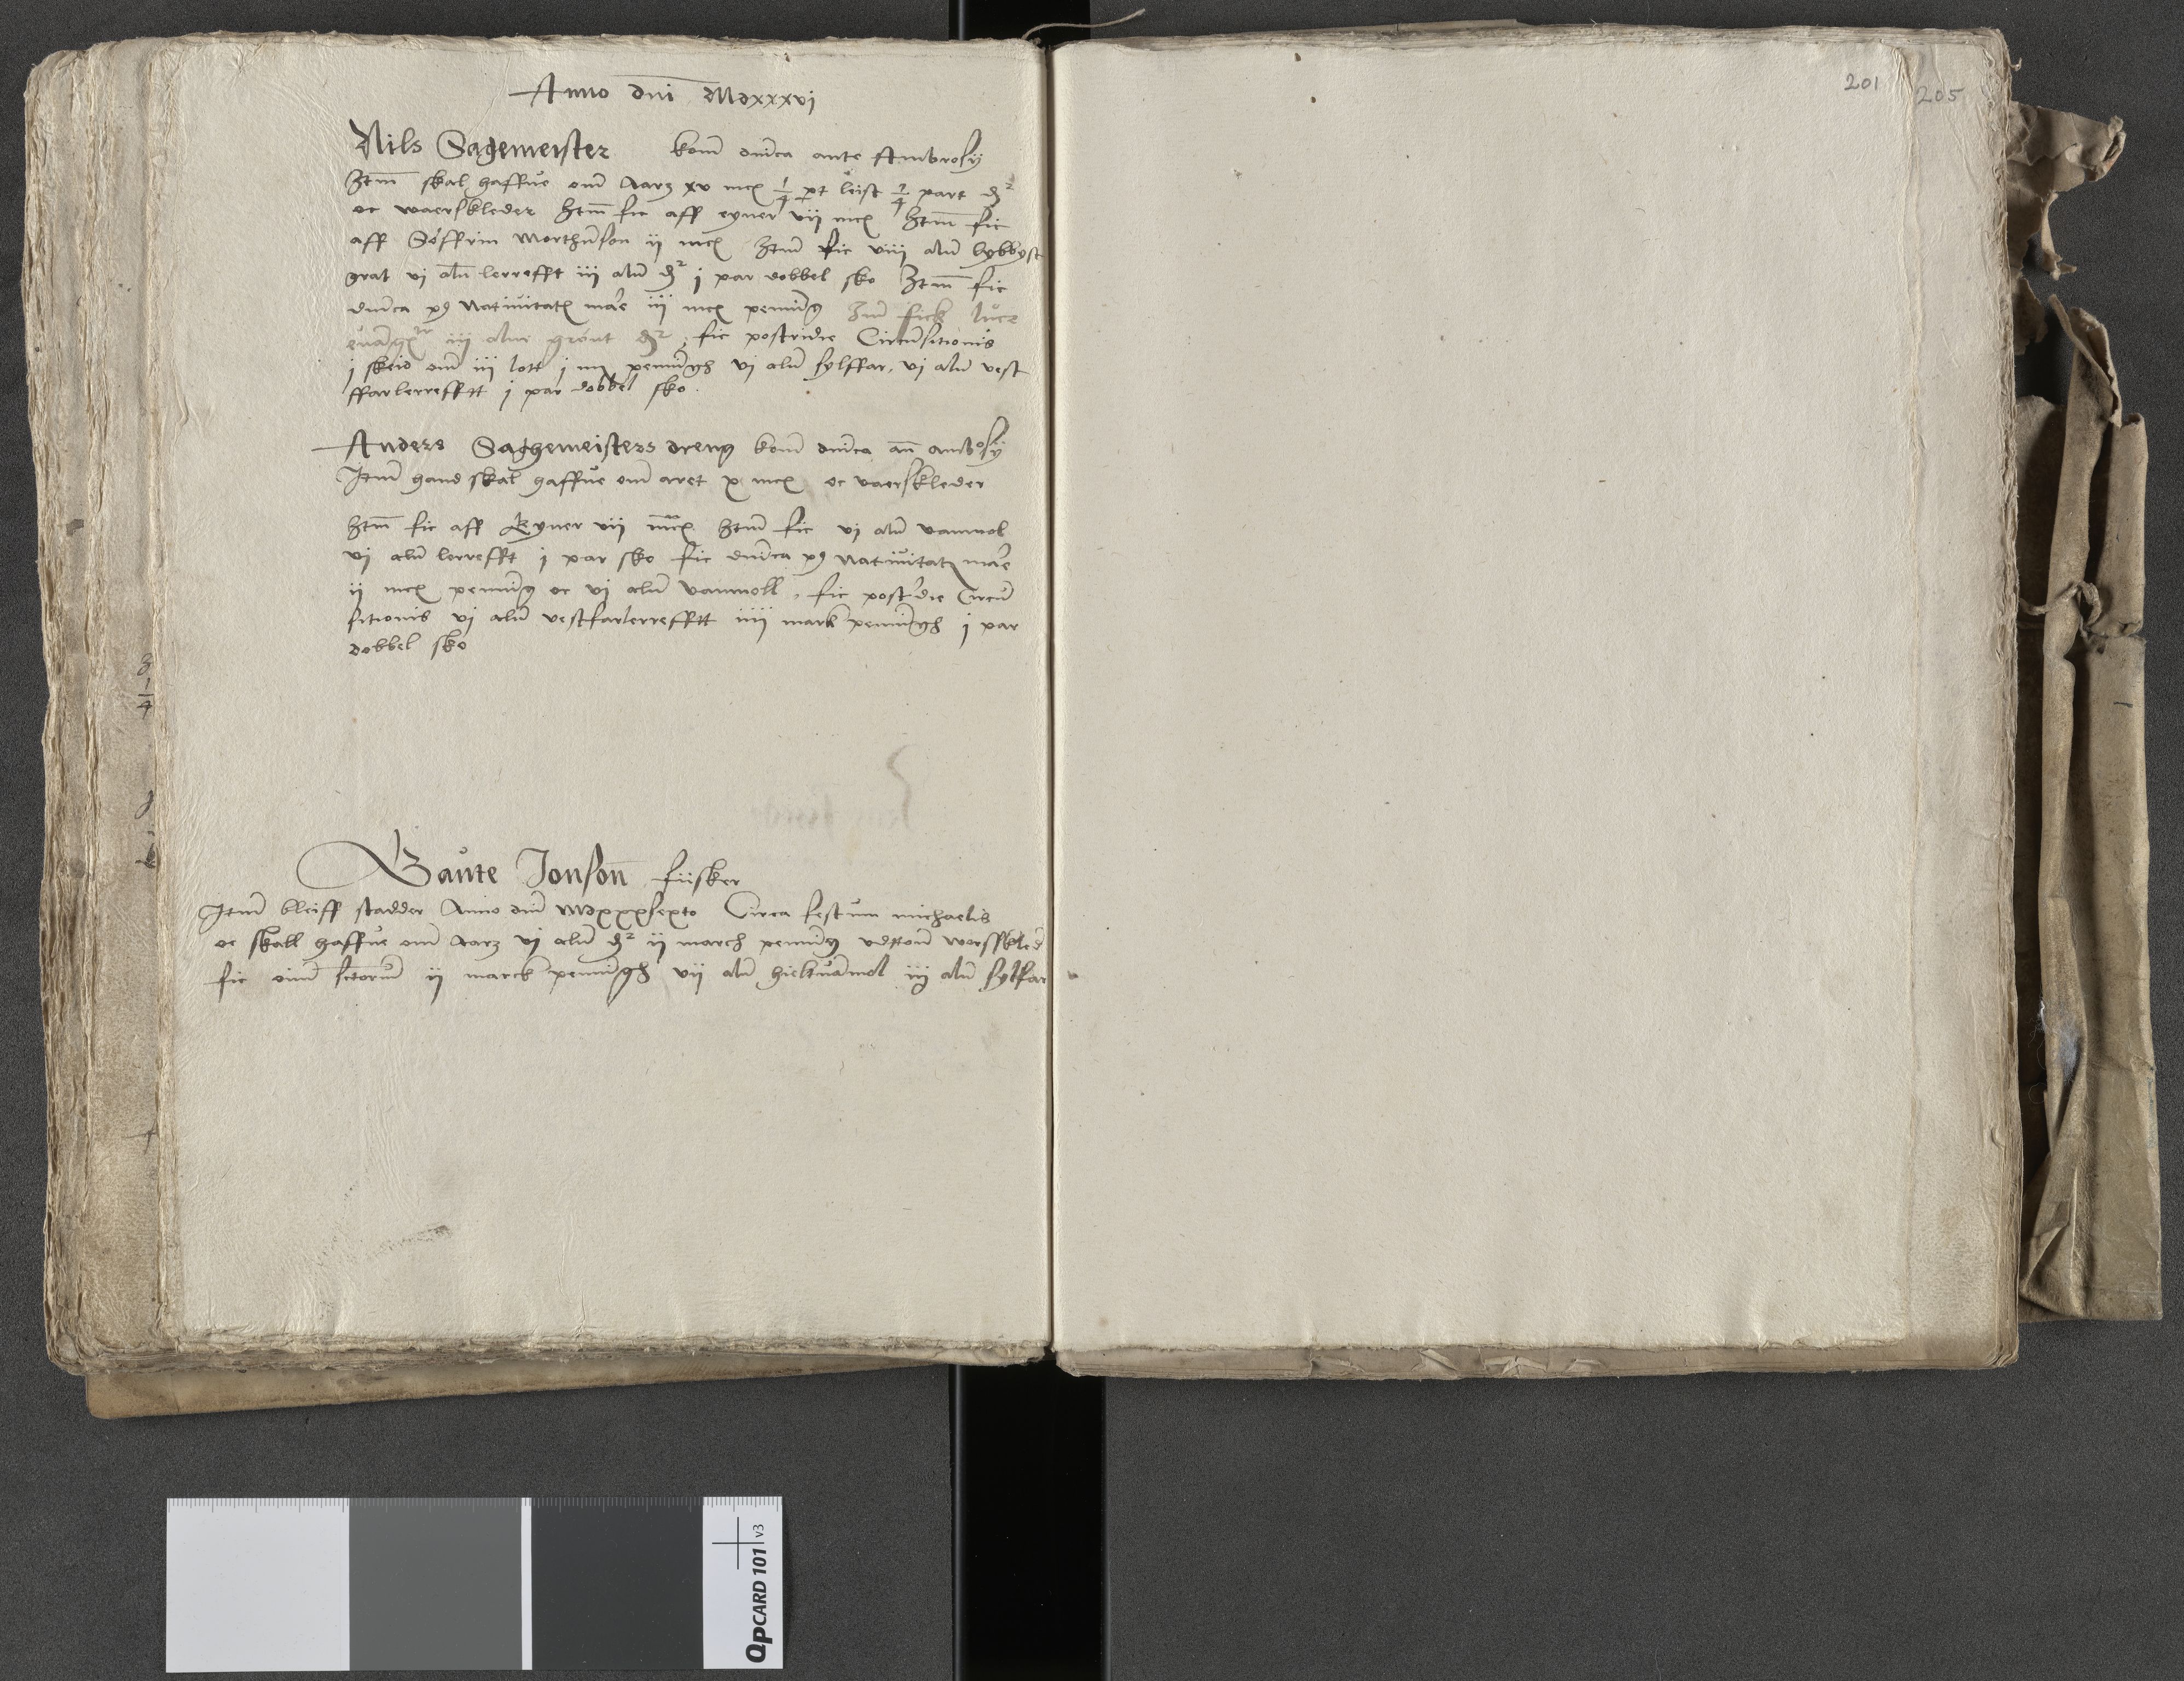 Anno dni Mdxxxvj
201
205
Nils Sagemeister kom dnica ante Ambrosij
Itm skal haffue om Aarz xv mcz 1/4 pt leist 1/4 part
oc waerskleder Itm fic aff eyner vii mcz Itm fic
aff Söffrin Morthenson ij mcz Itm fic viii alnn lybbyst
grat vj aln lerrefft iij aln i par dobbel sko Itm fic
dnica Natiuitatz marie iij mcz penning Itm fick luce
iij alne grönt fic postridie Circumsitionis
j skeid om iij lott i penningh vj aln sylffar vj aln vest
ffarlerrefftt j par dobbel sko
Anders Saghemeisters dreng kom dnica an ambosij
Itm hand skal haffue om aret x mcz oc vaerskleder
Itm fic aff Eyner vii mcz Itm fic vj aln vammol
vj aln lerrefft i par sko fic dnica Natiuitatz marie
ij mcz penning oc vj aln vammoll fic postridie Circum
sitionis vj aln vestfarlerrefftt iiij mark penningh j par
dobbel sko
Gaute Jonson fiisker
Itm bleiff stadder Anno dni Mdxxxsexto Circa festum michaelis
oc skall haffue om Aarz vj aln ij march penning vdtoun worsskled
fic oim sctorum ij marck penningh vij aln hieltuamol iij aln sylfar
8
1
4
QpCARD 101 v3